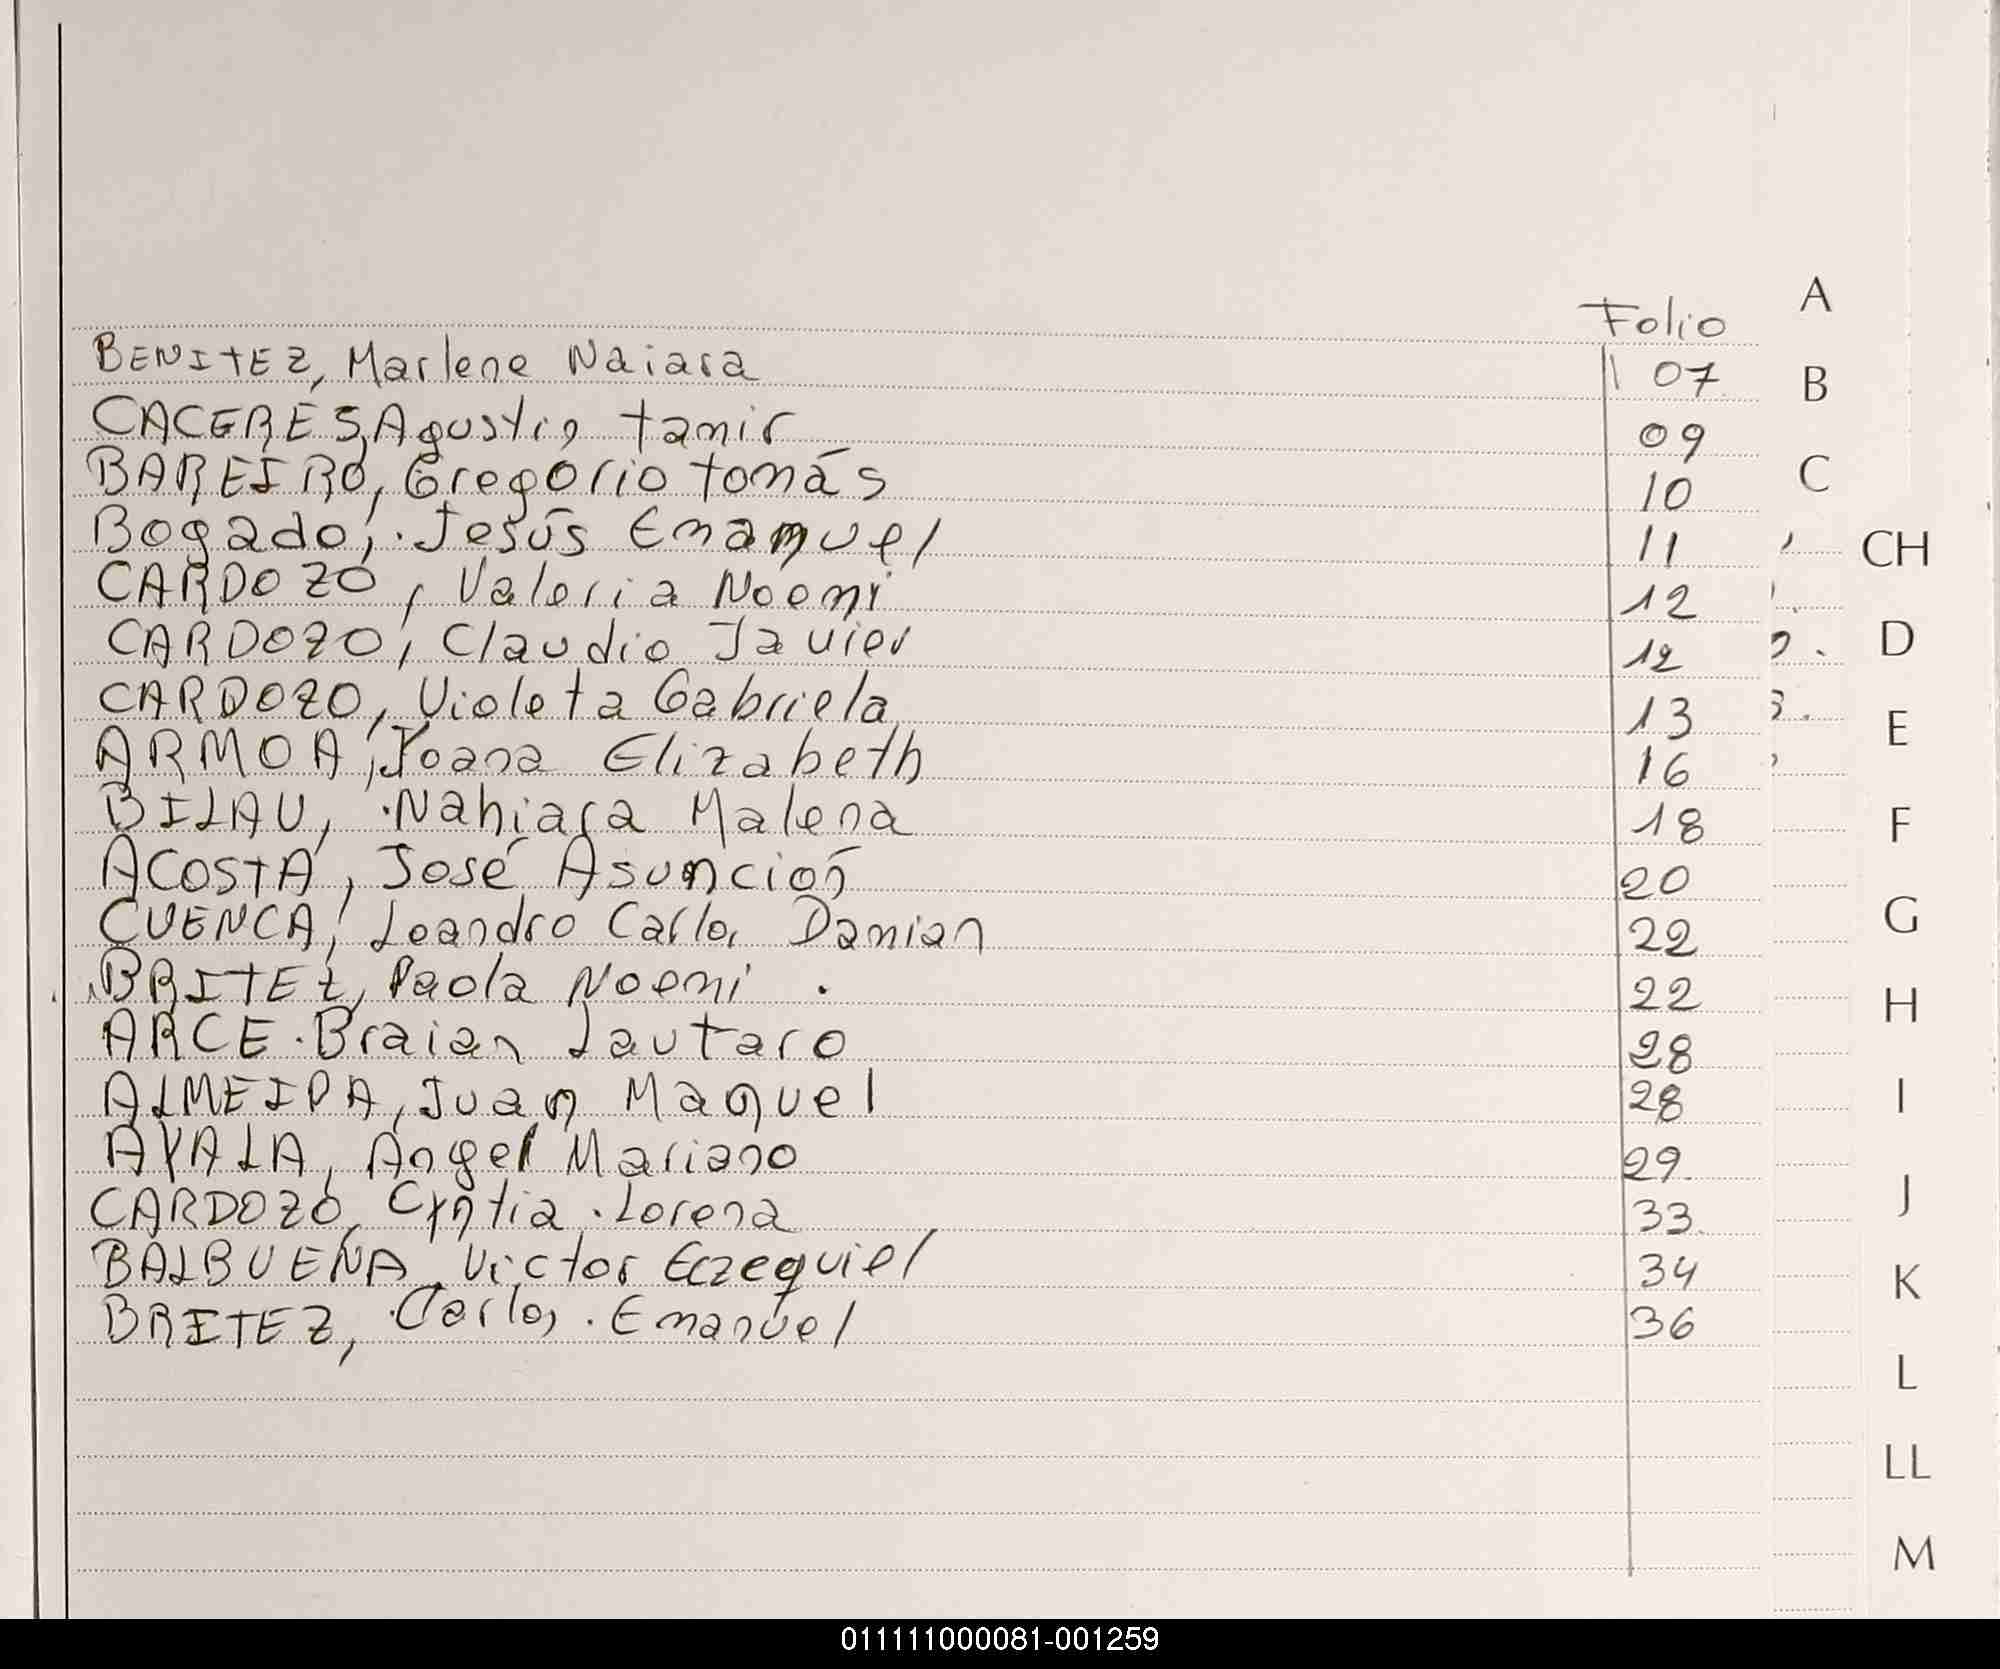 Folio
BENITEZ, Marlene Naiara 07
CACERES, Agustin tamir 09
BAREIRO, Gregorio tomás 10
Bogado, Jesús Emanuel 11
CARDOZO, Valeria Noemi 12
CARDOZO, Claudio Javier 12
CARDOZO, Violeta Gabriela 13
ARMOA, Joana Elizabeth 16
BILAU, Nahiara Malena 18
ACOSTA, José Asunción 20
CUENCA, Leandro Carlos Damian 22
BRITEZ, Paola Noemi . 22
ARCE. Braian Lautaro 28
ALMEIDA, Juan Manuel 28
AYALA, Angel Mariano 29
CARDOZO, Cyntia Lorena 33
BALBUENA, Victor Eczequiel 34
BRITEZ, Carlos Emanuel 36
A
B
C
CH
D
E
F
G
H
I
J
K
L
LL
M
011111000081-001259